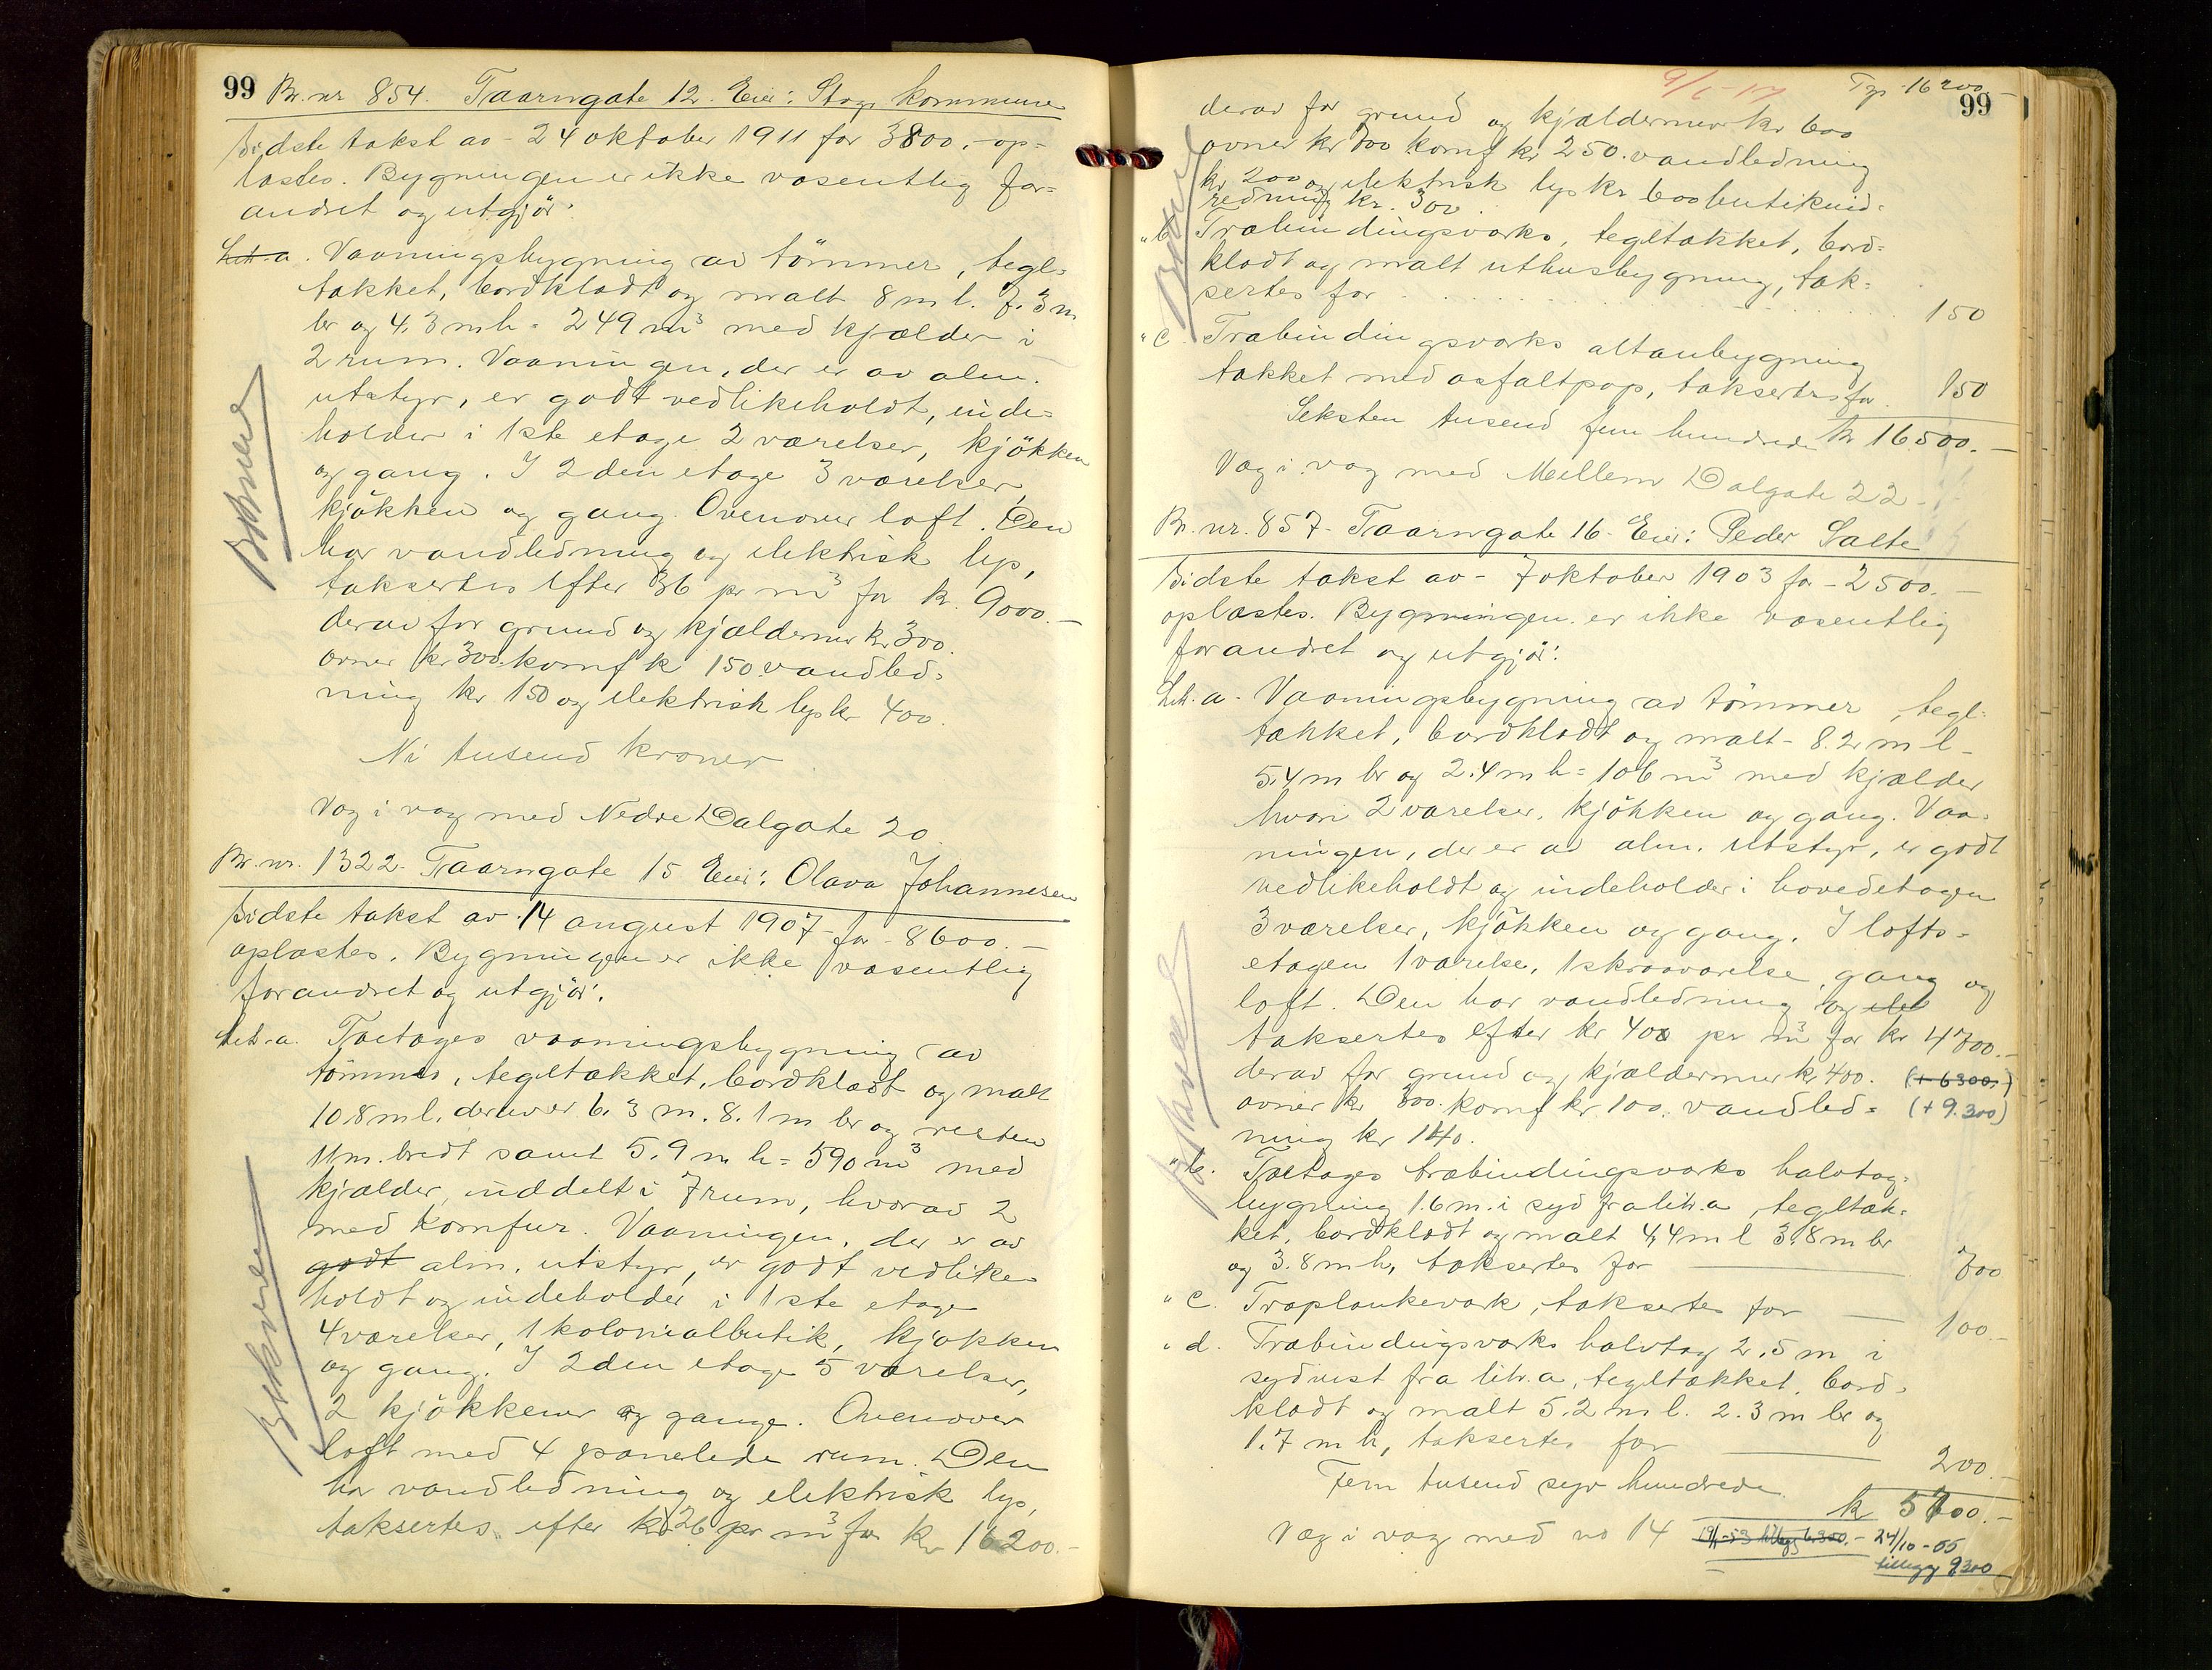 99 Br. nr 854. Taarngate 12. Eier: Stvgr kommune
Sidste takst av - 24 oktober 1911 for 3800,- op-
læstes. Bygningen er ikke væsentlig for-
andret og utgjør:
Litr. a. Vaaningsbygning av tømmer, tegl-
tækket, bordklædt og malt 8 m l. 7.3 m
br og 4.3 m h = 249 m³ med kjælder i
2 rum. Vaaningen, der er av alm.
utstyr, er godt vedlikeholdt, inde-
holder i 1ste etage 2 værelser, kjøkken
og gang. I 2den etage 3 værelser,
kjøkken og gang. Ovenover loft. Den
har vandledning og elektrisk lys,
taksertes efter 36 pr m³ for kr. 9000.-
derav for grund og kjældermur kr 300.
ovner kr 300. komf k 150. vandled-
ning kr 150 og elektrisk lys kr 400.
Ni tusend kroner
Væg i væg med Nedre Dalgate 20
Br. nr. 1322. Taarngate 15 Eier: Olava Johannesen
Sidste takst av 14 august 1907 - for - 8600.-
oplæstes. Bygningen er ikke væsentlig
forandret og utgjør:
Litr. a. Toetages vaaningsbygning av
tømmer, tegltækket, bordklædt og malt
10.8 m l. derav er 6.3 m. 8.1 m br og resten
11 m. bredt samt 5.9 m h = 590 m³ med
kjælder, inddelt i 7 rum, hvorav 2
med komfur. Vaaningen, der er av
godt alm. utstyr, er godt vedlike-
holdt og indeholder i 1ste etage
4 værelser, 1 kolonialbutik, kjøkken
og gang. I 2den etage 5 værelser,
2 kjøkkener og gange. Ovenover
loft med 4 panelede rum. Den
har vandledning og elektrisk lys,
taksertes efter kr 26 pr m³ for kr 16200.-
99
derav for grund og kjældermur kr 600
ovner kr 700 komf kr 250. vandledning
kr 200 og elektrisk lys kr 600 butikind-
redning kr. 300.
" b. Træbindingsværks, tegltækket, bord-
klædt og malt uthusbygning, tak-
sertes for . . . . . . . . . . 150
" c. Træbindingsværks altanbygning
tækket med asfaltpap, taksertes for 150
Seksten tusend fem hundrede kr 16500.-
Væg i væg med Mellem Dalgate 22-
Br. nr. 857- Taarngate 16- Eier: Peder Salte
Sidste takst av - 7 oktober 1903 for - 2500.-
oplæstes. Bygningen er ikke væsentlig
forandret og utgjør:
Litr. a- Vaaningsbygning av tømmer, tegl-
tækket, bordklædt og malt - 8.2 m l -
5.4 m br og 2.4 m h = 106 m³ med kjælder
hvori 2 værelser, kjøkken og gang. Vaa-
ningen, der er av alm. utstyr, er godt
vedlikeholdt og indeholder i hovedetagen
3 værelser, kjøkken og gang. I lofts-
etagen 1 værelse, 1 skraaværelse, gang og
loft. Den har vandledning og elek
taksertes efter kr 400 pr m³ for kr 4700.-
derav for grund og kjældermur kr 400. (+ 6300.-)
ovner kr 300. komf kr 100. vandled- (+ 9.300)
ning kr 140.
" b. Toetages træbindingsværks halvtag-
bygning 1.6 m. i syd fra litr. a, tegltæk-
ket, bordklædt og malt 4,4 m l 3.8 m br
og 3.8 m h, taksertes for 700
" c. Træplankeværk, taksertes for 100.-
" d. Træbindingsværks halvtag 2.5 m i
sydvest fra litr. a, tegltækket, bord-
klædt og malt 5.2 m l. 2.3 m br og
1.7 m h, taksertes for 200.-
Fem tusend syv hundrede k 5700.-
Væg i væg med no 14
24/10-55
tillegg 9300